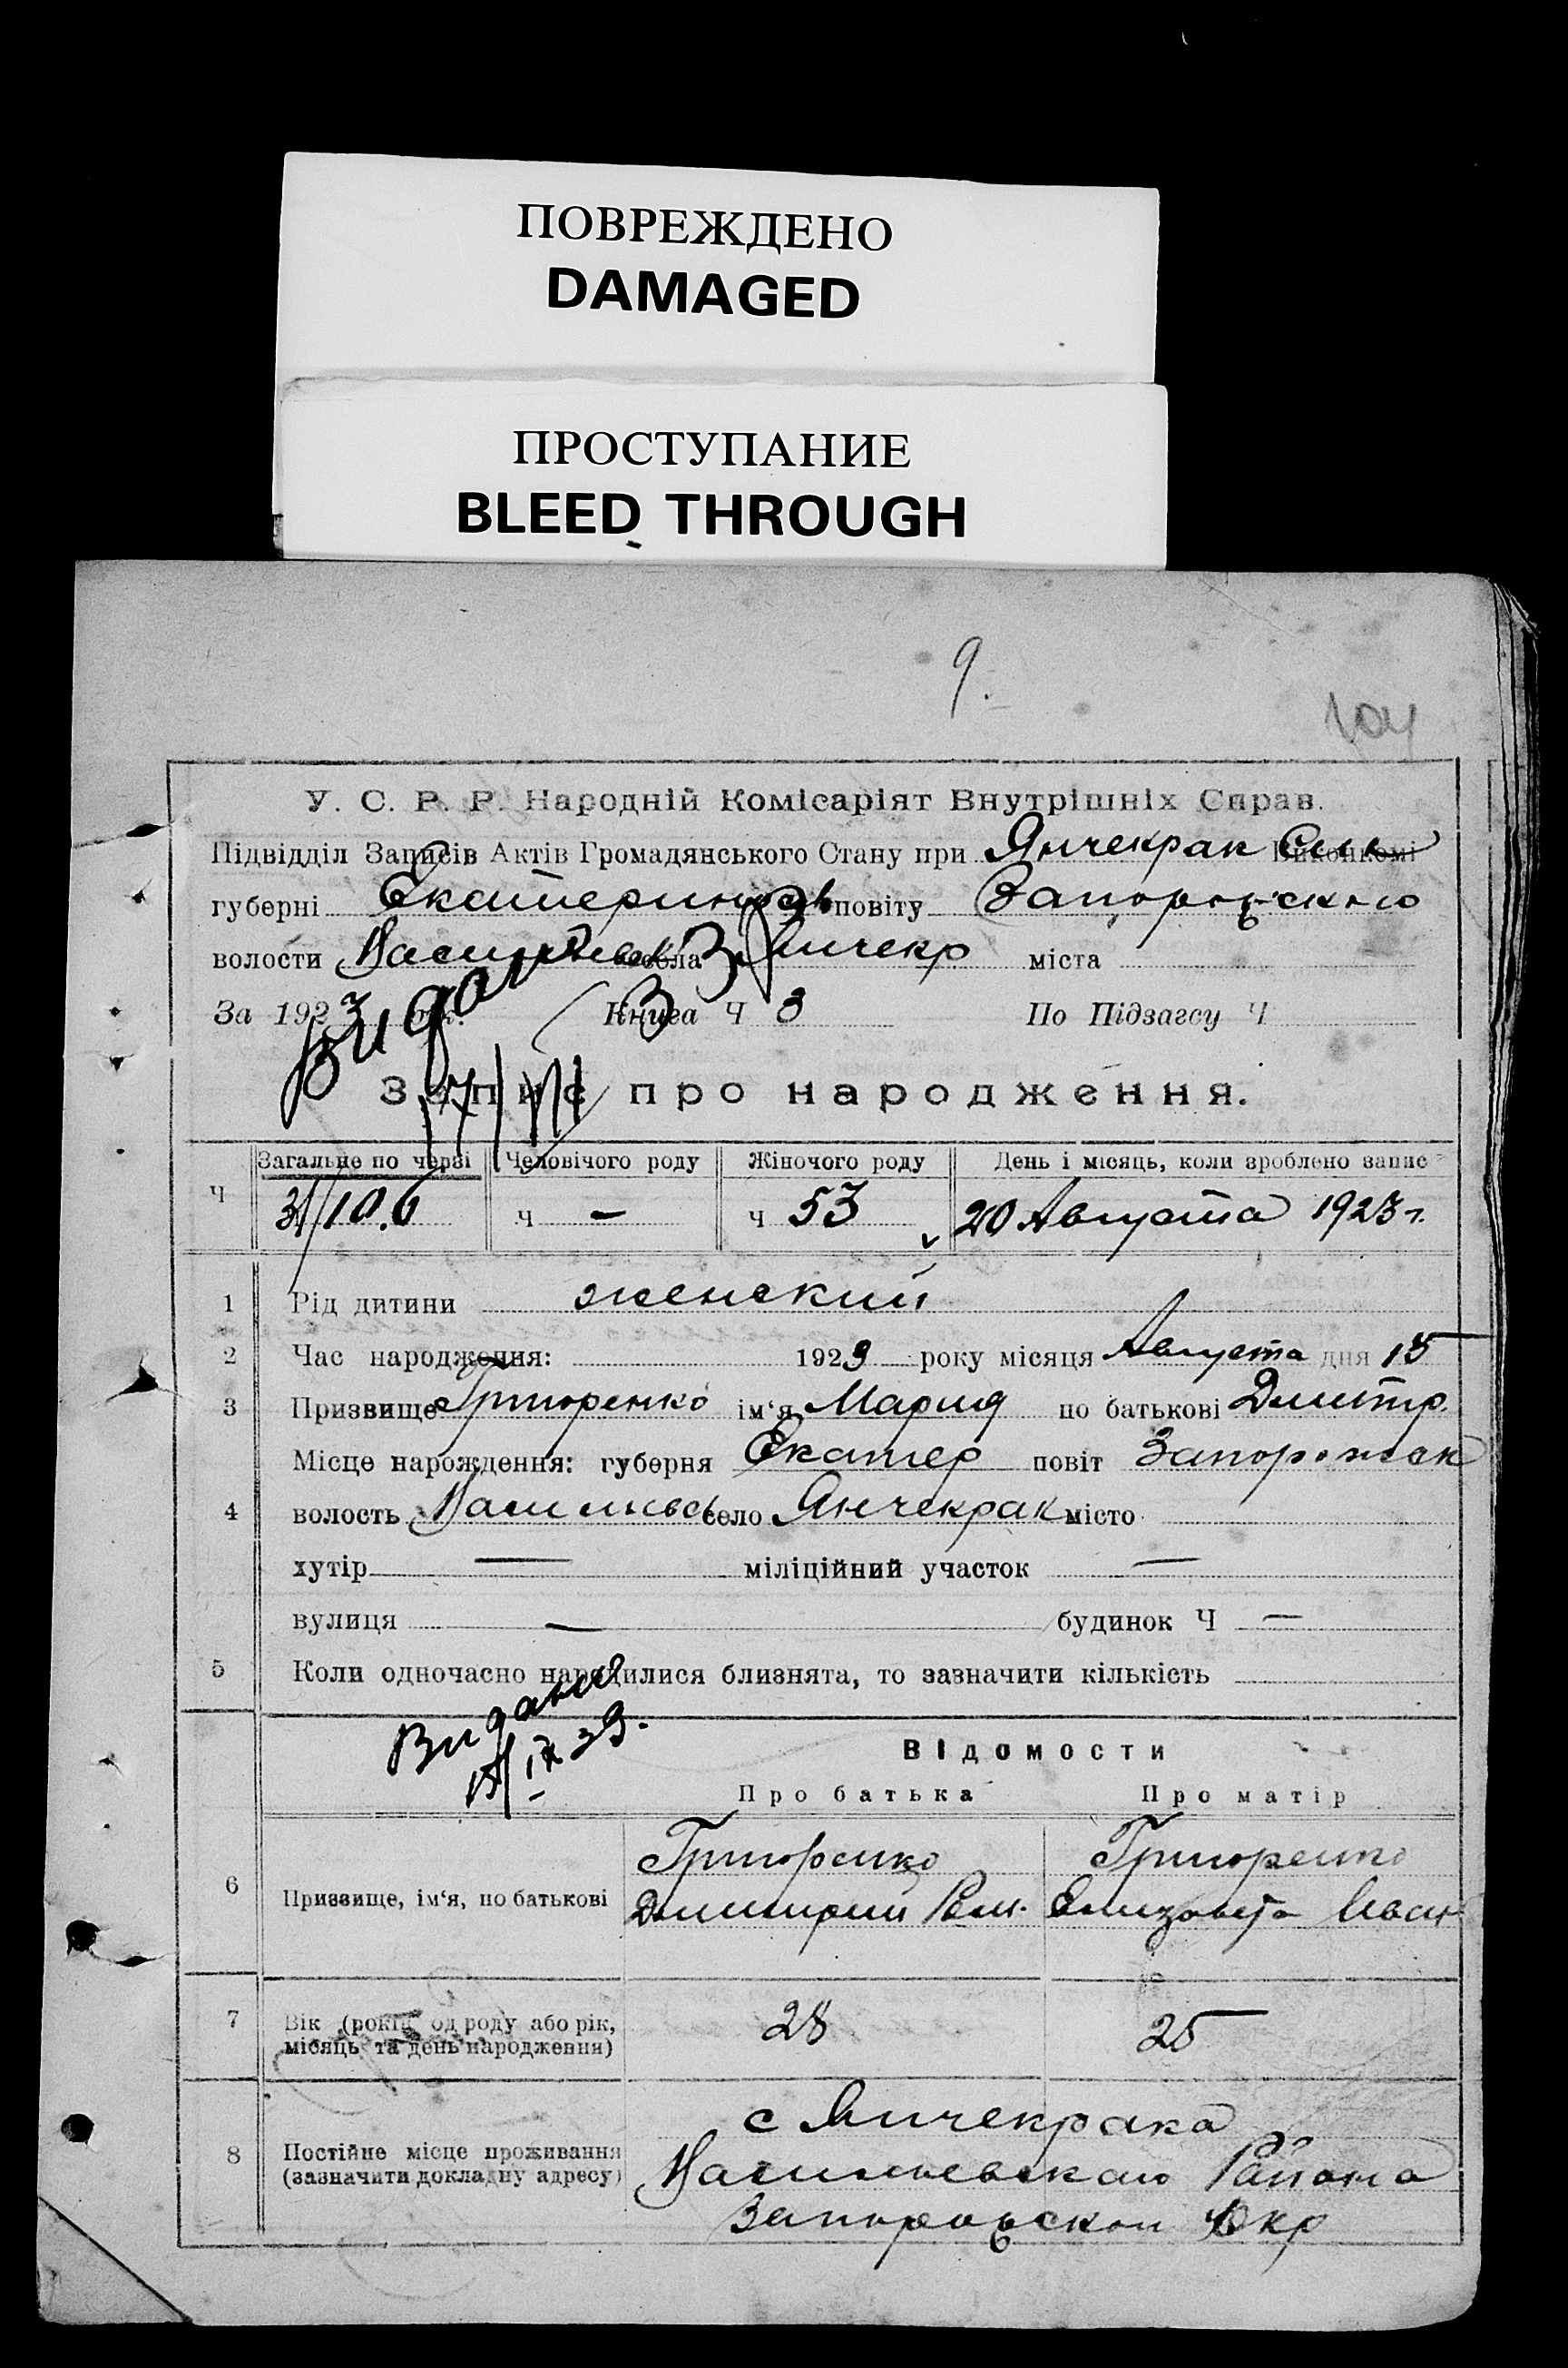 ПОВРЕЖДЕНО
DAMAGED
ПРОСТУПАНИЕ
BLEED THROUGH
9.
104
У. С. Р. Р. Народній Комісаріят Внутрішніх Справ.
Підвідділ Записів Актів Громадянського Стану при Янчекрак Виконкомі
губерні Екатеринос повіту Запорожского
волости Васильевск села Янчекр міста
За 1923 рік. Книга Ч 3 По Підзагсу Ч
Запис про народження.
Загальне по черзі Человічого роду Жіночого роду День і місяць, коли зроблено запис
Ч 106 Ч — Ч 53 20 Августа 1923 г.
1 Рід дитини женский
2 Час народження: 1923 року місяця Августа дня 15
3 Призвище Григоренко ім‘я Мария по батькові Дмитр.
Місце нарождення: губерня Екатер повіт Запорожск
4 волость Васильевс село Янчекрак місто
хутір — міліційний участок —
вулиця — будинок Ч —
5 Коли одночасно народилися близнята, то зазначити кількість
Видано
IX 39.
Відомости
Про батька Про матір
Григоренко Григоренко
6 Призвище, ім‘я, по батькові Димитрий Елизавета Иван
7 Вік (років од роду або рік, 28 25
місяць та день народження)
с Янчекрака
8 Постійне місце проживання Васильевскаго Района
(зазначити докладну адресу) Запорожской Окр